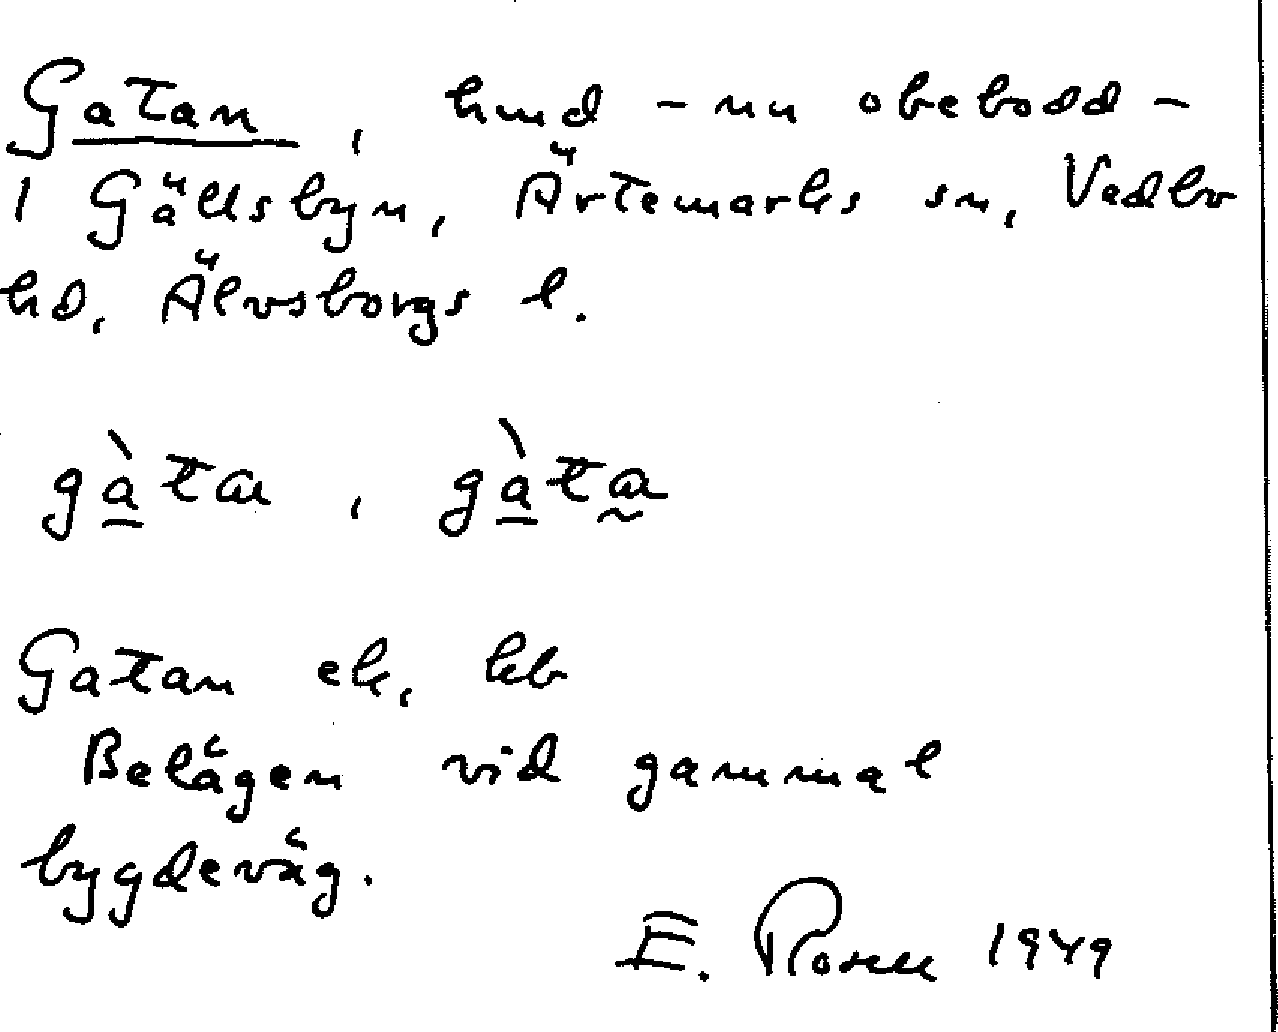 Gatan, hmd - nu obebodd -
i Gällsbyn, Ärtemarks sn, Vedbo
hd, Älvsborgs l.
gàta, gàta
Gatan ek, kb
Belägen vid gammal
bygdeväg.
E. Rosell 1949